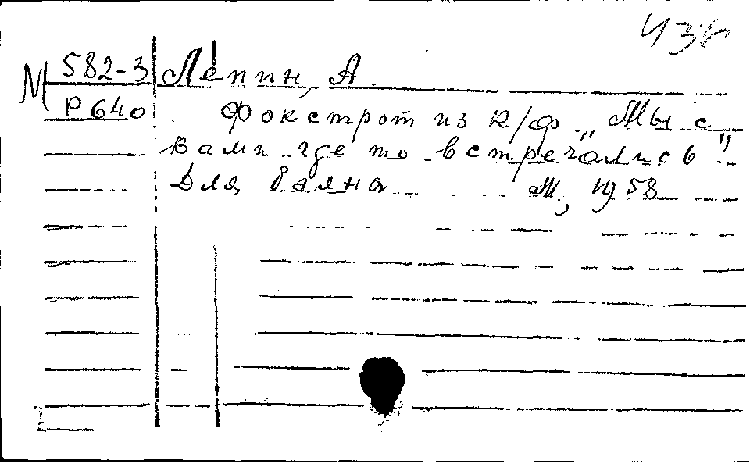 N 582-3 Лепин, А
Р640 Фокстрот из к/ф „Мы с
вами где то встречались"
Для баяна М, 1958